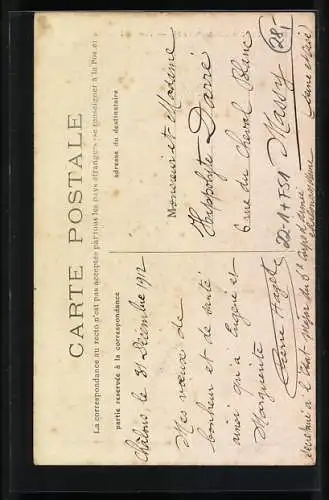 CARTE POSTALE
La correspondance au recto n'est pas acceptée par tous les pays étrangers (se renseigner à la Poste)
partie reservée à la correspondance
adresse du destinataire
Châlons, le 31 Décembre 1912
Mes vœux de
bonheur et de santé
ainsi qu'à Eugène et
Marguerite
Monsieur et Madame
Hippolyte Darré
6 rue du Cheval Blanc
Massy
28-
22-14751
à l'État major du 6e Corps d'armée